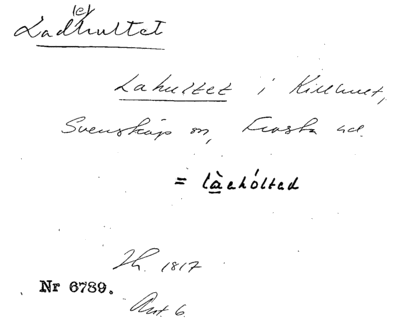 Lad(e)hultet
Lahultet i Killhult,
Svensköp sn, Frosta hd.
= làehólted
Th. 1817
Nr 6789.
Ant. 6.